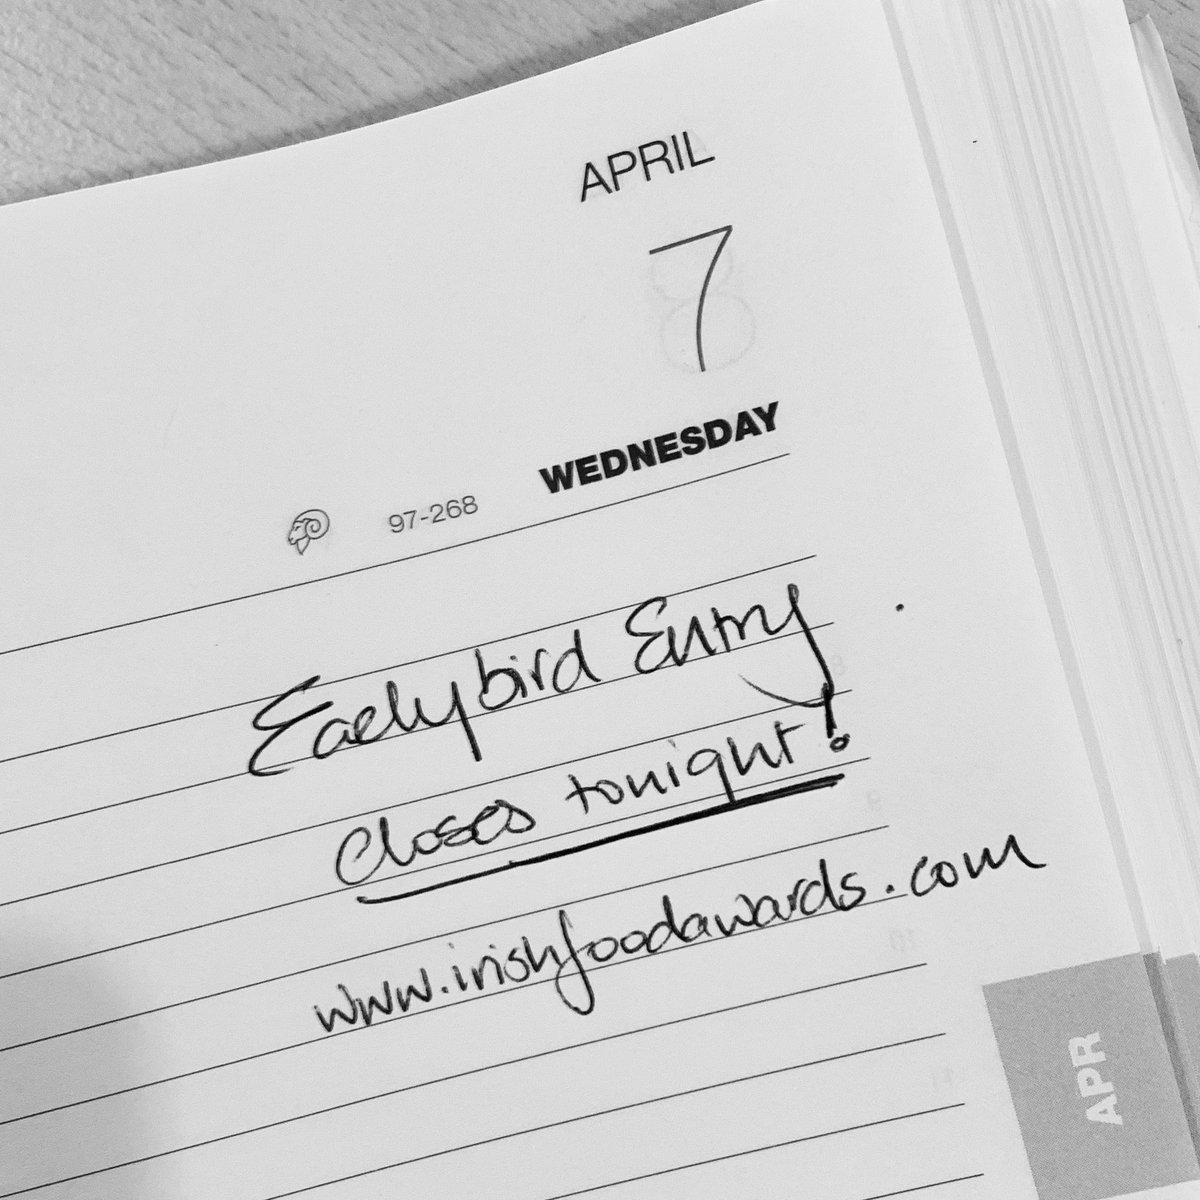 APRIL
7
WEDNESDAY
97-268
Earlybird Entry
closes tonight!
www.irishfoodawards.com
APR